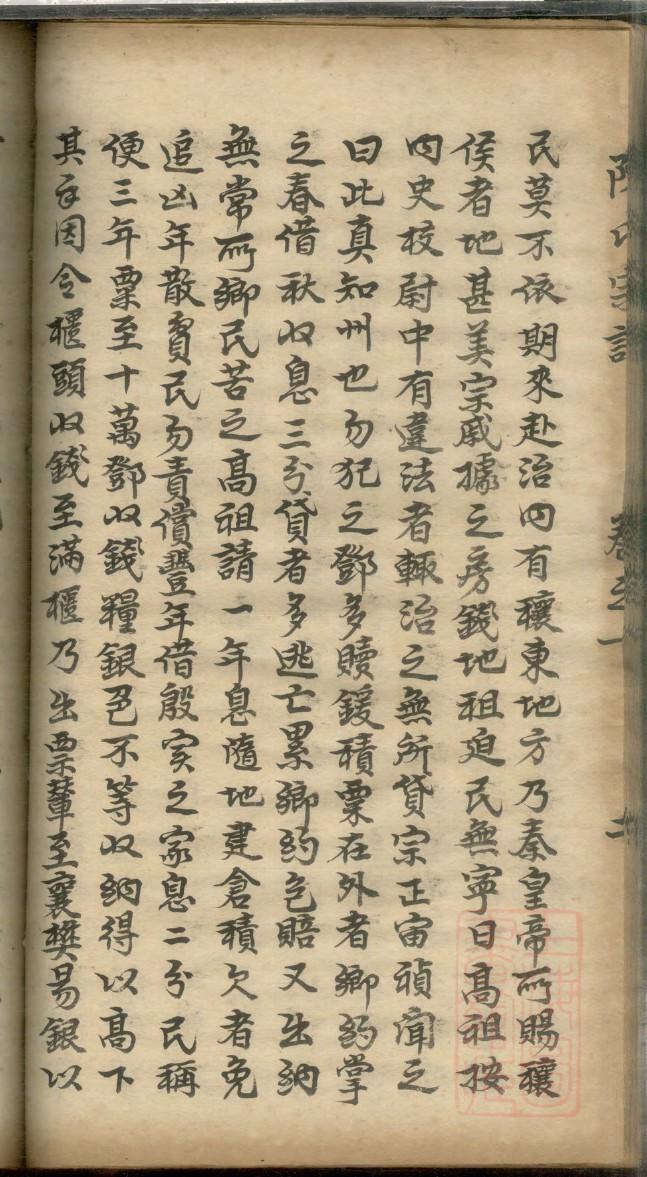 民莫不依期來赴治内有穰東地方乃秦皇帝所賜穰
侯者地甚美宗戚據之房錢地租迫民無寧日髙祖按
内史校尉中有違法者輒治之無所貸宗正宙禎聞之
曰此真知州也勿犯之鄧多贖鍰積粟在外者鄉約掌
之春借秋收息三分貸者多逃亡累鄉約包賠又出納
無常所鄉民苦之髙祖請一年息隨地建倉積欠者免
追凶年散賓民勿責償豐年借殷实之家息二分民稱
便三年粟至十萬鄧收錢糧銀色不等收納得以髙下
其手因令櫃頭收錢至滿櫃乃出票輦至襄樊易銀以